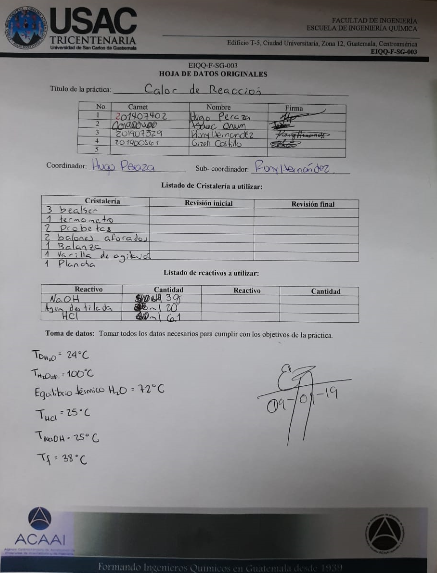 USAC
TRICENTENARIA
Universidad de San Carlos de Guatemala
FACULTAD DE INGENIERÍA
ESCUELA DE INGENIERÍA QUÍMICA
Edificio T-5, Ciudad Universitaria, Zona 12, Guatemala, Centroamérica
EIQQ-F-SG-003
EIQQ-F-SG-003
HOJA DE DATOS ORIGINALES
Título de la práctica: Calor de Reacción
No Carnet Nombre Firma
1 201407402 Hugo Peraza
2
3 Hernandez
4 Castillo
5
Coordinador: Hugo Peraza Sub- coordinador: Rony Hernández
Listado de Cristalería a utilizar:
Cristalería Revisión inicial Revisión final
3 beaker
1 termometro
2 Probetas
2 balones aforados
1 Balanza
1 Varilla de agitación
1 Plancha
Listado de reactivos a utilizar:
Reactivo Cantidad Reactivo Cantidad
NaOH
Agua destilada
HCl
Toma de datos: Tomar todos los datos necesarios para cumplir con los objetivos de la práctica.
= 24°C
= 100°C
Equilibrio térmico H2O = 72°C
THCl = 25°C
TNaOH = 25°C
Tf = 38°C
09-01-19
ACAAI
Formando Ingenieros Químicos en Guatemala desde 1939